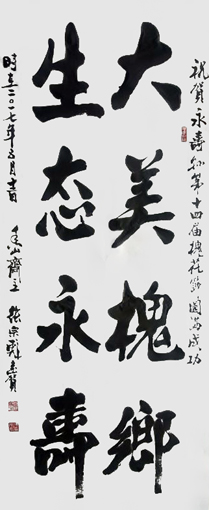 祝賀永壽縣第十四届槐花節圓滿成功
大美槐鄉
生态永壽
時在二〇一七年五月
山齋主 張宗